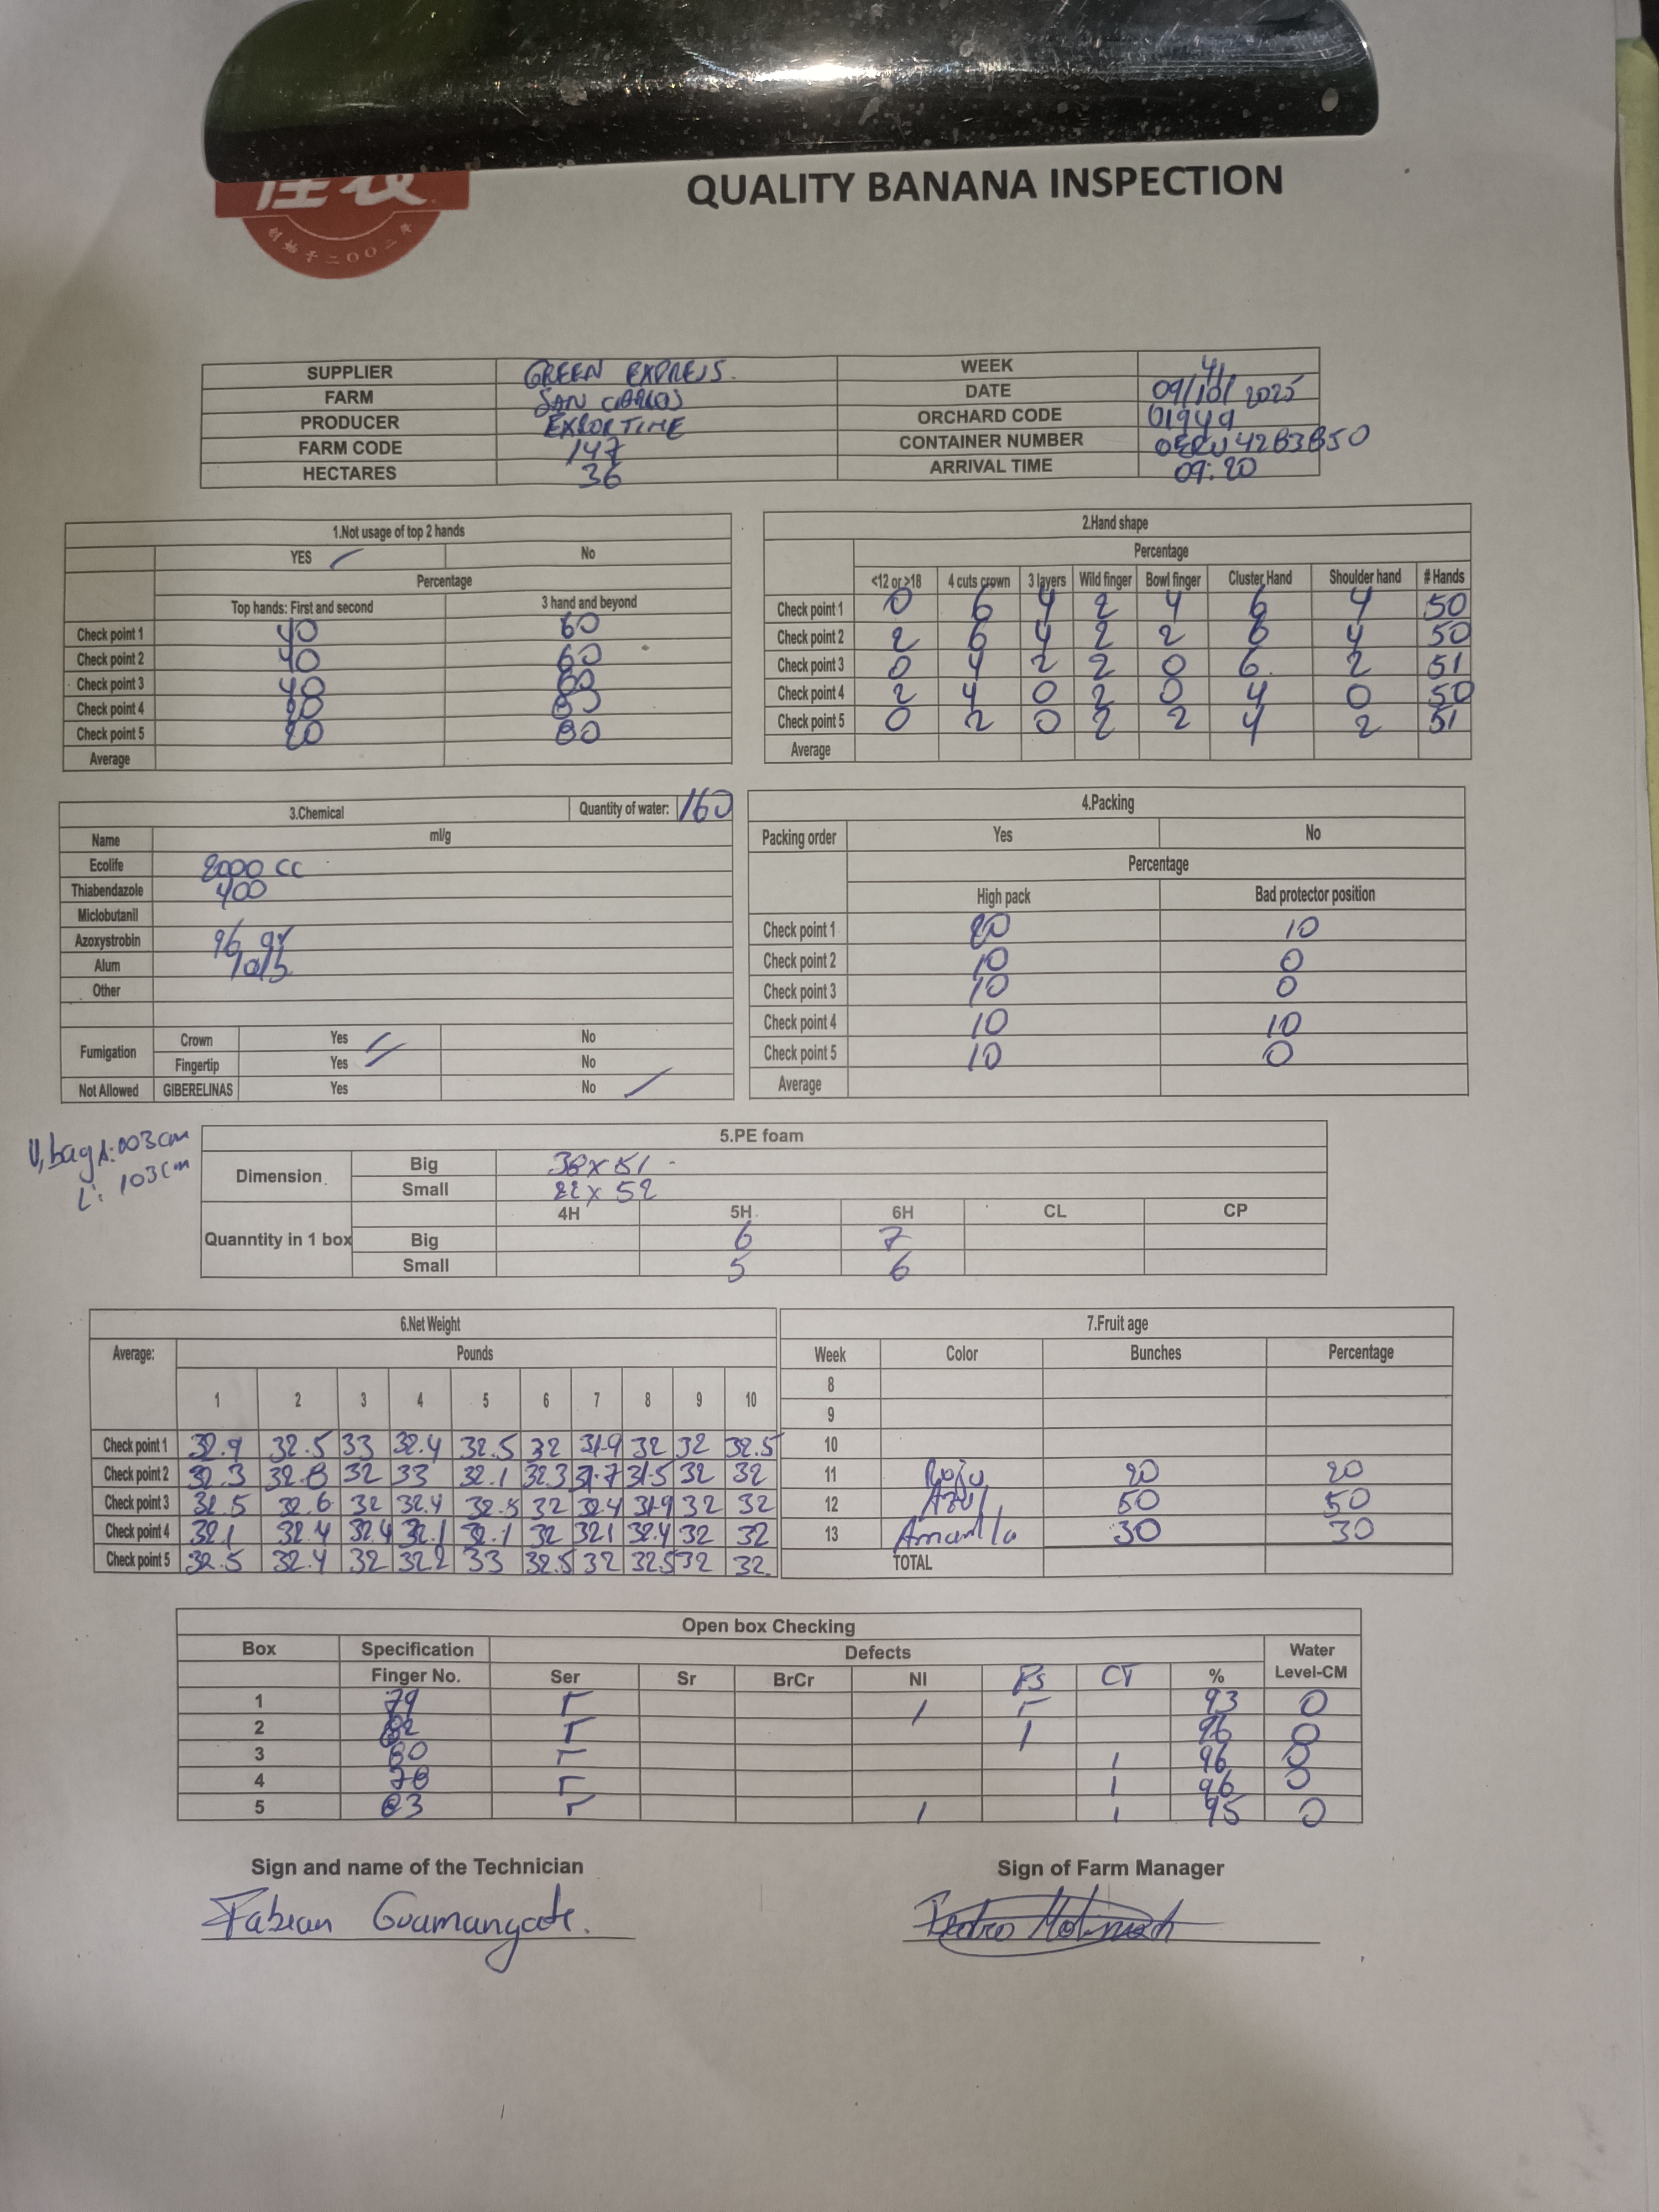 创始于二〇〇二年
QUALITY BANANA INSPECTION
SUPPLIER GREEN EXPRESS. WEEK 41
FARM SAN CARLOS DATE 09/10/2025
PRODUCER EXPORTIME ORCHARD CODE 01949
FARM CODE 147 CONTAINER NUMBER
HECTARES 36 ARRIVAL TIME 09:20
1.Not usage of top 2 hands
YES No
Percentage
Top hands: First and second 3 hand and beyond
Check point 1 40 60
Check point 2 40 60
Check point 3 40
Check point 4 20 80
Check point 5 20 80
Average
2.Hand shape
Percentage
<12 or >18 4 cuts crown 3 layers Wild finger Bowl finger Cluster Hand Shoulder hand # Hands
Check point 1 0 6 4 2 4 6 4 50
Check point 2 2 6 4 2 2 6 4 50
Check point 3 0 4 2 2 0 6. 2 51
Check point 4 2 4 0 2 0 4 0 50
Check point 5 0 2 0 2 2 4 2 51
Average
3.Chemical Quantity of water: 160
Name ml/g
Ecolife 2000 cc
Thiabendazole 400
Miclobutanil
Azoxystrobin 96 gr
Alum
Other
Fumigation Crown Yes No
Fingertip Yes No
Not Allowed GIBERELINAS Yes No
4.Packing
Packing order Yes No
Percentage
High pack Bad protector position
Check point 1 20 10
Check point 2 10 0
Check point 3 10 0
Check point 4 10 10
Check point 5 10 0
Average
L: 103cm
5.PE foam
Dimension Big 38x51
Small 22x52
4H 5H 6H CL CP
Quanntity in 1 box Big 6 7
Small 5 6
6.Net Weight
Average: Pounds
1 2 3 4 5 6 7 8 9 10
Check point 1 32.9 32.5 33 32.4 32.5 32 31.9 32 32 32.5
Check point 2 32.3 32.8 32 33 32.1 32.3 31.7 31.5 32 32
Check point 3 32.5 32.6 32 32.4 32.5 32 32.4 31.9 32 32
Check point 4 32.1 32.4 32.4 32.1 32.1 32 32.1 32.4 32 32
Check point 5 32.5 32.4 32 32.2 33 32.5 32 32.5 32 32.
7.Fruit age
Week Color Bunches Percentage
8
9
10
11 Rojo 20 20
12 Azul 50 50
13 Amarillo 30 30
TOTAL
Open box Checking
Box Specification Defects Water
Finger No. Ser Sr BrCr NI Fs CT % Level-CM
1 79 93 0
2 82 96 0
3 80 96 0
4 78 96 0
5 83 95 0
Sign and name of the Technician Sign of Farm Manager
Fabian Guamangate. Pedro